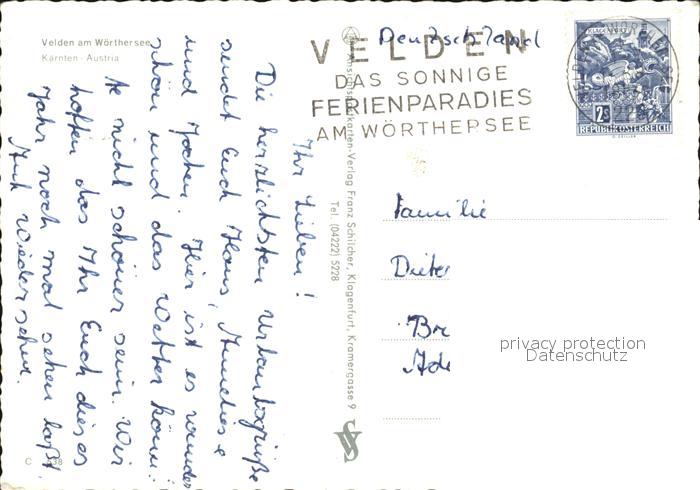 Velden am Wörthersee
Kärnten - Austria
Ihr Lieben!
Die herzlichsten Urlaubsgrüße
sendet Euch Hans,
und Jochen. Hier ist es wunder
schön und das Wetter könn-
te nicht schöner sein. Wir
hoffen das Ihr Euch dieses
Jahr noch mal sehen laßt.
Auf Wiedersehn.
Ansichtskarten-Verlag Franz Schilcher, Klagenfurt, Kramergasse 9
Tel. (04222) 5228
Deutschland
VELDEN
DAS SONNIGE
FERIENPARADIES
AM WÖRTHERSEE
KLAGENFURT
2S
REPUBLIK ÖSTERREICH
Familie
Dieter
Bre
Ade
privacy protection
Datenschutz